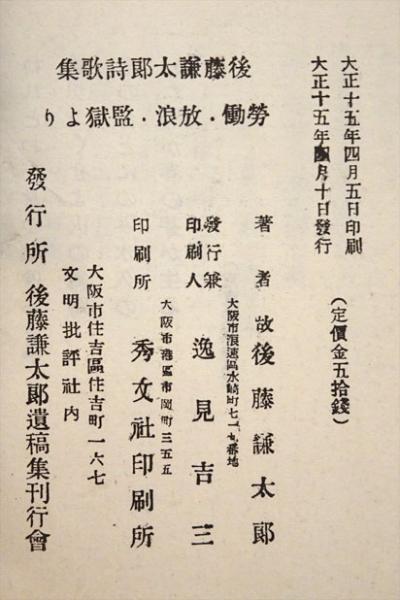 大正十五年四月五日印刷
大正十五年四月十日發行
(定價金五拾錢)
後藤謙太郎詩歌集
勞働・放浪・監獄より
著者 故後藤謙太郎
大阪市浪速區水崎町七一九番地
發行兼印刷人 逸見吉三
大阪市港區市岡町三五五
印刷所 秀文社印刷所
大阪市住吉區住吉町一六七
文明批評社内
發行所 後藤謙太郎遺稿集刊行會